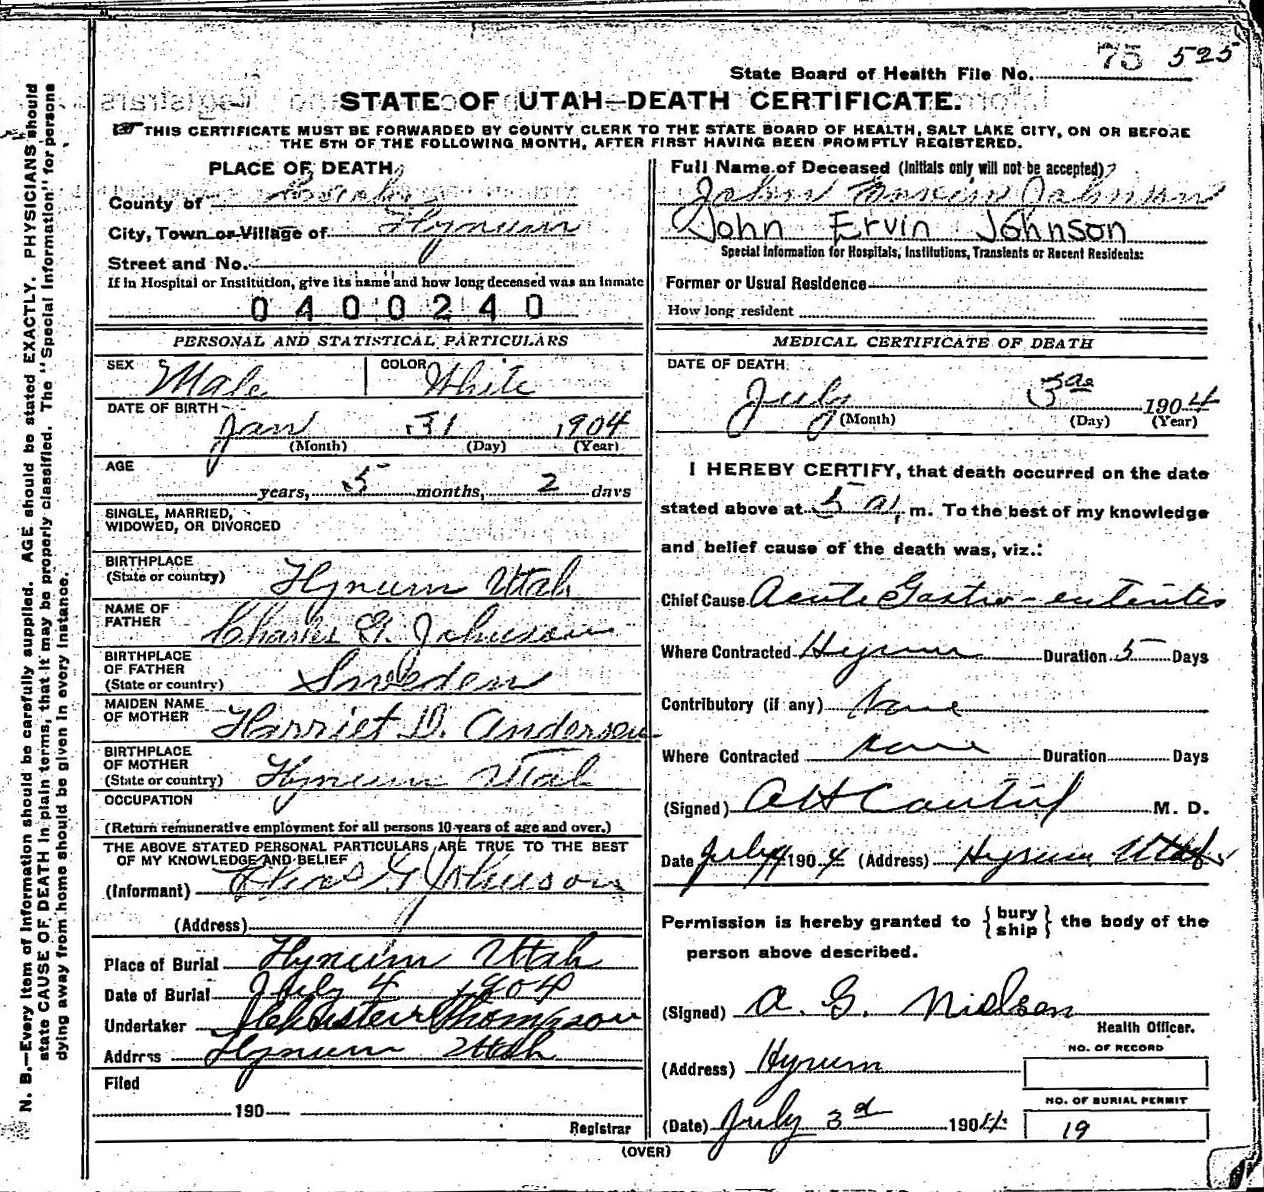 75 525
State Board of Health File No.
STATE OF UTAH—DEATH CERTIFICATE.
THIS CERTIFICATE MUST BE FORWARDED BY COUNTY CLERK TO THE STATE BOARD OF HEALTH, SALT LAKE CITY, ON OR BEFORE
THE 5TH OF THE FOLLOWING MONTH, AFTER FIRST HAVING BEEN PROMPTLY REGISTERED.
PLACE OF DEATH,
County of
City, Town or Village of Hyrum
Street and No.
If in Hospital or Institution, give its name and how long deceased was an inmate
0400240
Full Name of Deceased (Initials only will not be accepted)
John Ervin Johnson
John Ervin Johnson
Special Information for Hospitals, Institutions, Transients or Recent Residents:
Former or Usual Residence
How long resident
PERSONAL AND STATISTICAL PARTICULARS
SEX Male COLOR White
DATE OF BIRTH
Jan 31 1904
(Month) (Day) (Year)
AGE
years, 5 months, 2 days
SINGLE, MARRIED,
WIDOWED, OR DIVORCED
BIRTHPLACE
(State or country) Hyrum Utah
NAME OF
FATHER Charles G. Johnson
BIRTHPLACE
OF FATHER
(State or country) Sweden
MAIDEN NAME
OF MOTHER Harriet D. Andersen
BIRTHPLACE
OF MOTHER
(State or country) Hyrum Utah
OCCUPATION
(Return remunerative employment for all persons 10 years of age and over.)
THE ABOVE STATED PERSONAL PARTICULARS ARE TRUE TO THE BEST
OF MY KNOWLEDGE AND BELIEF
(Informant) Chas G Johnson
(Address)
Place of Burial Hyrum Utah
Date of Burial July 4 1904
Undertaker Thompson
Address Hyrum Utah
Filed
190
Registrar
MEDICAL CERTIFICATE OF DEATH
DATE OF DEATH
July 3rd 1904
(Month) (Day) (Year)
I HEREBY CERTIFY, that death occurred on the date
stated above at 5 a.m. To the best of my knowledge
and belief cause of the death was, viz.:
Chief Cause Acute Gastro-enteritis
Where Contracted Hyrum Duration 5 Days
Contributory (if any) None
Where Contracted none Duration Days
(Signed) M. D.
Date July 4 1904 (Address) Hyrum Utah
Permission is hereby granted to {bury
ship} the body of the
person above described.
(Signed) A. G. Nielsen
Health Officer.
(Address) Hyrum
NO. OF RECORD
NO. OF BURIAL PERMIT
19
(Date) July 3d 1904
(OVER)
N. B.—Every item of information should be carefully supplied. AGE should be stated EXACTLY. PHYSICIANS should
state CAUSE OF DEATH in plain terms, that it may be properly classified. The "Special Information" for persons
dying away from home should be given in every instance.